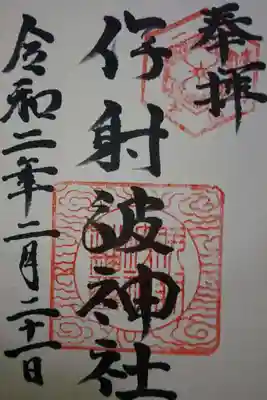 奉拝
伊射波神社
令和二年二月二十一日